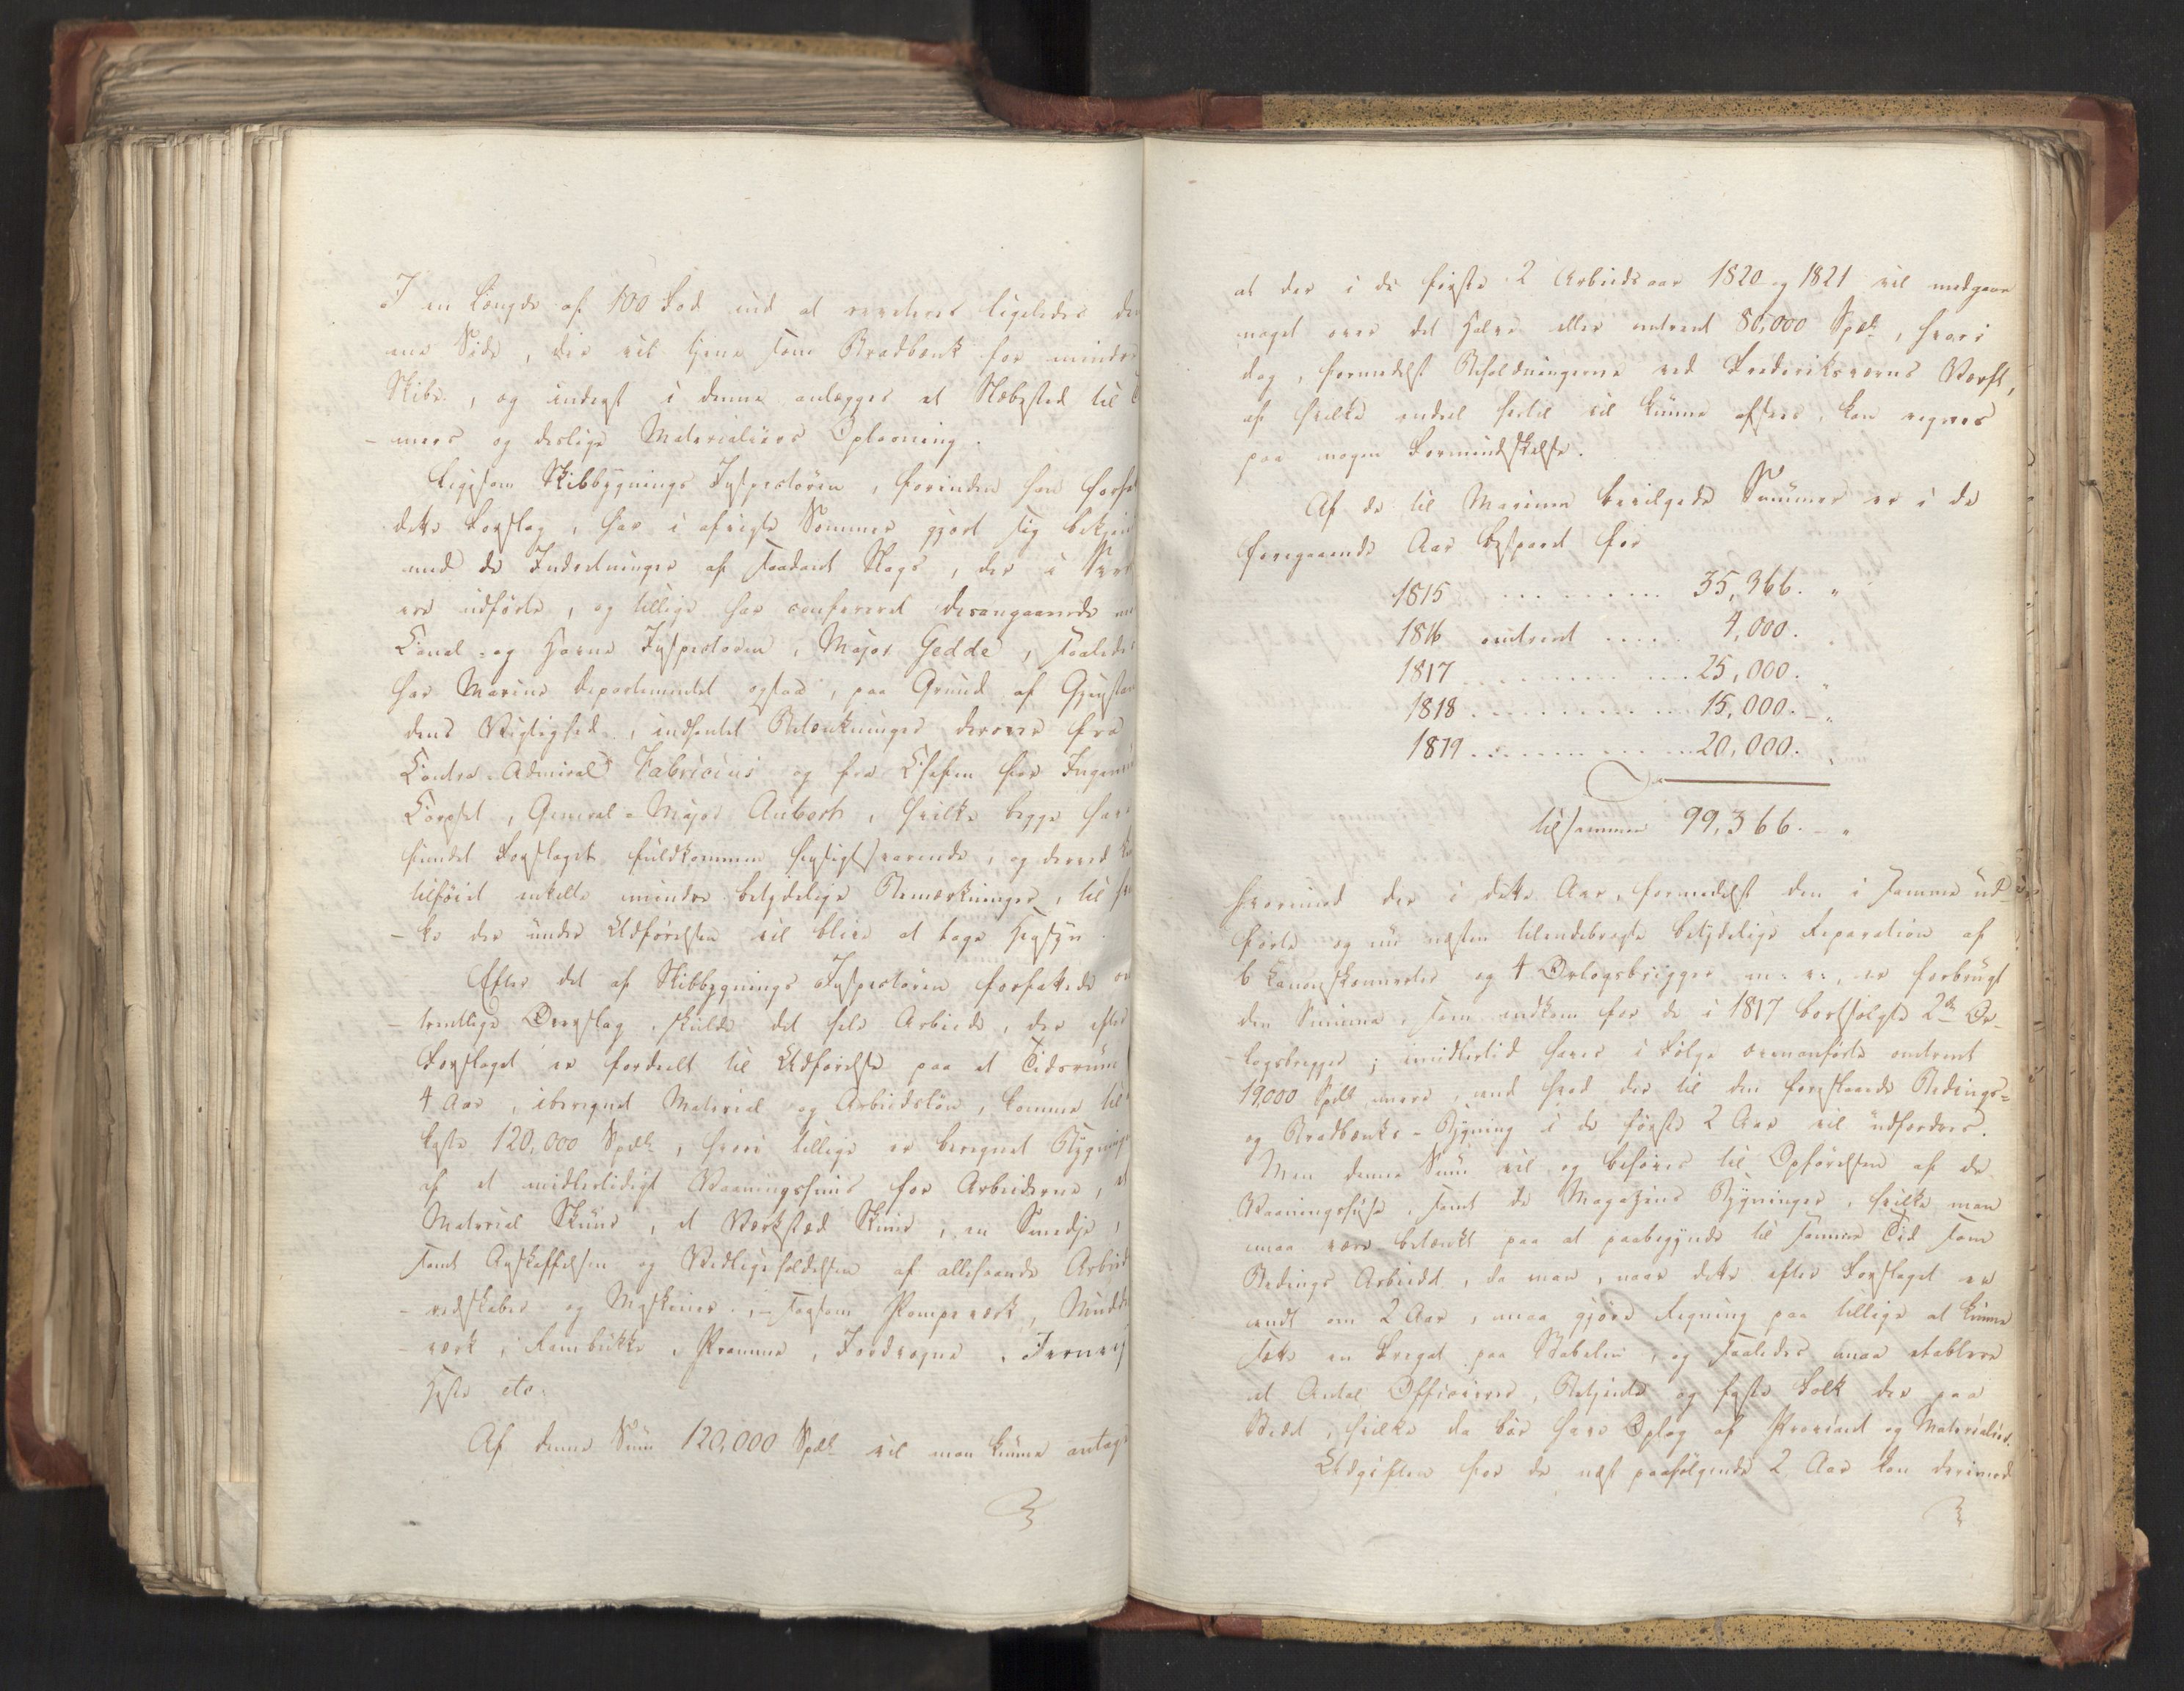 I en Længde af 100 Fod ind at reveteres ligeledes den
ene Side, der vil tjene som Bradbænk for mindre
Skibe, og inderst i denne anlægges et Slæbested til
mers og deslige Materialiers Oplagning.
Ligesom Skibbygnings Inspectören, forinden han forfat
dette Forslag, har i afvigte Sommer gjort sig bekjent
med de Indretninger af saadant Slags, der i
ere udførte, og tillige har confereret desangaaende med
Canal- og Havne Inspectoren, Major Gedde, saaledes
har Marine Departementet ogsaa, paa Grund af Gjenstan
dens Vigtighed, indhentet Betænkninger derover fra
Contra-Admiral Fabricius og fra Chefen for Ingenieur
Corpset, General-Major Aubert, hvilke begge have
fundet Forslaget fuldkommen hensigtsvarende, og derved
tilföiet enkelte mindre betydelige Bemærkninger, til hvil
- ke der under Udförelsen vil blive at tage Hensyn.
Efter det af Skibbygnings Inspectören forfattede om
- trentlige Overslag, skulde det hele Arbeide, der efter
Forslaget er fordeelt til Udförelse paa et Tidsrum
4 Aar, iberegnet Material og Arbeidslön, komme til
koste 120,000 Spdlr, hvori tillige er beregnet Bygning
af et midlertidigt Vaaningshuus for Arbeiderne, et
Material Skuur, et Værksted Skuur, en Smedje,
samt Anskaffelsen og Vedligeholdelsen af allehaande Arbeids
- redskaber og Maskiner, - saasom Pompeværk, Mudder
- værk, Rambukke, Pramme, Jordvogne,
Heste etc.
Af denne Sum 120,000 Spdlr vil man kunne antage
at der i de første 2 Arbeidsaar 1820 og 1821 vil medgaae
noget over det Halve eller omtrent 80,000 Spdlr, hvori
dog, formedelst Beholdningerne ved Frederiksværns Værft,
af hvilke endeel hertil vil kunne afsees, kan regnes
paa nogen Formindskelse.
Af de til Marinen bevilgede Summer er i de
foregaaende Aar besparet for
1815 ......... 35,366. "
1816 omtrent ..... 4,000. "
1817 ......... 25,000. "
1818 ......... 15,000. - "
1819 ......... 20,000. "
tilsammen 99,366. - "
hvorimod der i dette Aar, formedelst den i samme ud-
førte og nu næsten tilendebragte betydelige Reparation af
6 Canonskonnerter og 4 Orlogsbrigger m: v:, er forbrugt
den Summa, som indkom for de i 1817 bortsolgte 2de Or-
logsbrigger; imidlertid haves i Fölge ovenanførte omtrent
19,000 Spdlr mere, end hvad der til den forestaaende Bedings-
og Bradbænks-Bygning i de første 2 Aar vil udfordres.
Men denne Sum vil og behöves til Opförelsen af de
Vaaningshuse, samt de Magazins Bygninger, hvilke man
maa være betænkt paa at paabegynde til samme Tid som
Bedings Arbeidet, da man, naar dette efter Forslaget er
endt om 2 Aar, maa gjöre Regning paa tillige at kunne
sætte en Fregat paa Stabelen, og saaledes maa etablere
et Antal Officierer, Betjente og faste Folk der paa
Stedet, hvilke da bör have Oplag af Proviant og Materialier.
Udgiften for de næst paafölgende 2 Aar kan derimod